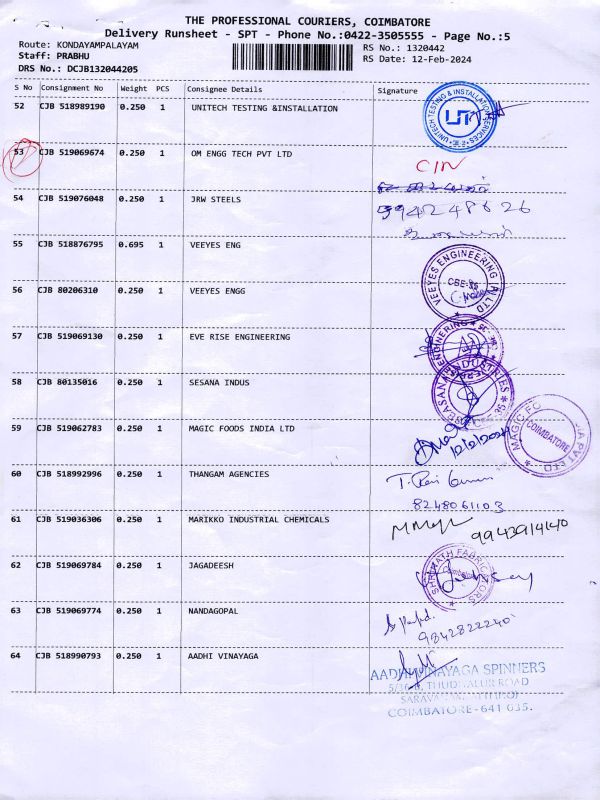 THE PROFESSIONAL COURIERS, COIMBATORE
Delivery Runsheet - SPT - Phone No.:0422-3505555 - Page No.:5
Route: KONDAYAMPALAYAM
RS No.: 1320442
Staff: PRABHU
RS Date: 12-Feb-2024
DRS No.: DCJB132044205
S No Consignment No Weight PCS Consignee Details Signature
52 CJB 518989190 0.250 1 UNITECH TESTING &INSTALLATION
UNITECH TESTING & INSTALLATION SERVICES
UT
53 CJB 519069674 0.250 1 OM ENGG TECH PVT LTD
CIN
54 CJB 519076048 0.250 1 JRW STEELS
994248626
55 CJB 518876795 0.695 1 VEEYES ENG
VEEYES ENGINEERING (P) LTD
CBE-35
56 CJB 80206310 0.250 1 VEEYES ENGG
57 CJB 519069130 0.250 1 EVE RISE ENGINEERING
ENGINEERING
58 CJB 80135016 0.250 1 SESANA INDUS
INDUSTRIES
59 CJB 519062783 0.250 1 MAGIC FOODS INDIA LTD
12/2/2024
MAGIC PVT LTD
COIMBATORE
60 CJB 518992996 0.250 1 THANGAM AGENCIES
8248061103
61 CJB 519036306 0.250 1 MARIKKO INDUSTRIAL CHEMICALS
62 CJB 519069784 0.250 1 JAGADEESH
63 CJB 519069774 0.250 1 NANDAGOPAL
9842822240
64 CJB 518990793 0.250 1 AADHI VINAYAGA
AADHI VINAYAGA SPINNERS
THUDIYALUR ROAD
COIMBATORE-641 035.